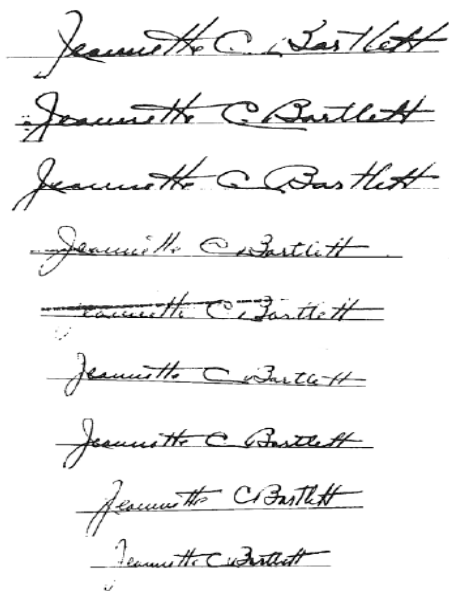 Jeannette C. Bartlett
Jeannette C. Bartlett
Jeannette C Bartlett
Jeannette C Bartlett
Jeannette C. Bartlett
Jeannette C Bartlett
Jeannette C Bartlett
Jeannette C Bartlett
Jeannette C Bartlett